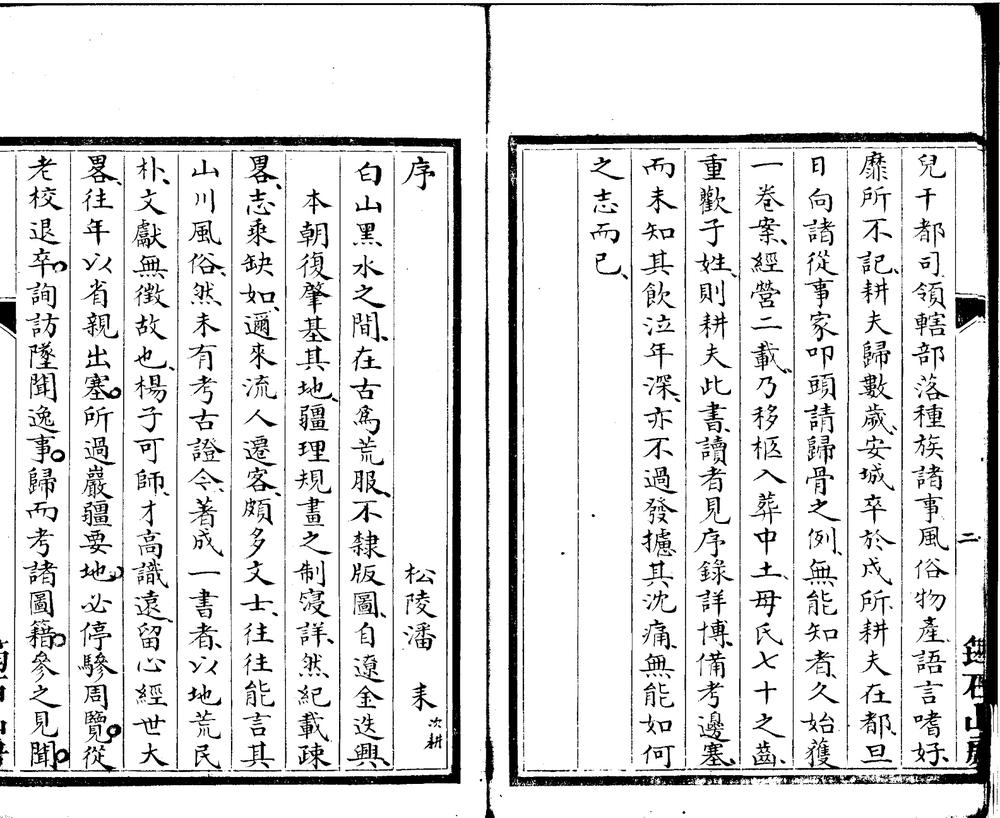 兒干都司領轄部落種族諸事風俗物產語言嗜好、
靡所不記、耕夫歸數歲、安城卒於戍所、耕夫在都、旦
日向諸從事家叩頭請歸骨之例、無能知者、久始獲
一卷案、經營二載、乃移柩入葬中土、毋氏七十之齒、
重歡子姓、則耕夫此書、讀者見序錄詳博、備考邊塞、
而未知其飲泣年深、亦不過發攄其沈痛、無能如何
之志而已、
二
序
松陵潘　耒次耕
白山黑水之間、在古爲荒服、不隸版圖、自遼金迭興、
本朝復肇基其地、疆理規畫之制寖詳、然紀載疎
畧、志乘缺如、邇來流人遷客、頗多文士、往往能言其
山川風俗、然未有考古證今、著成一書者、以地荒民
朴、文獻無徵故也、楊子可師、才高識遠、留心經世大
畧、往年以省親出塞。所過巖疆要地。必停驂周覽。從
老校退卒。詢訪墜聞逸事。歸而考諸圖籍。參之見聞。